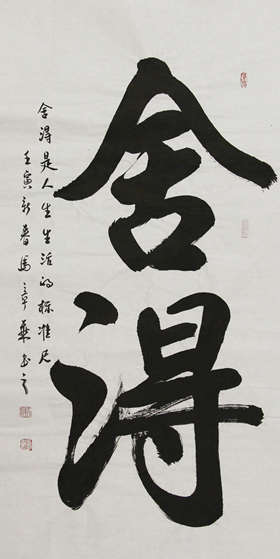 舍得
舍得是人生生活的标准尺
壬寅新春馮章燕书